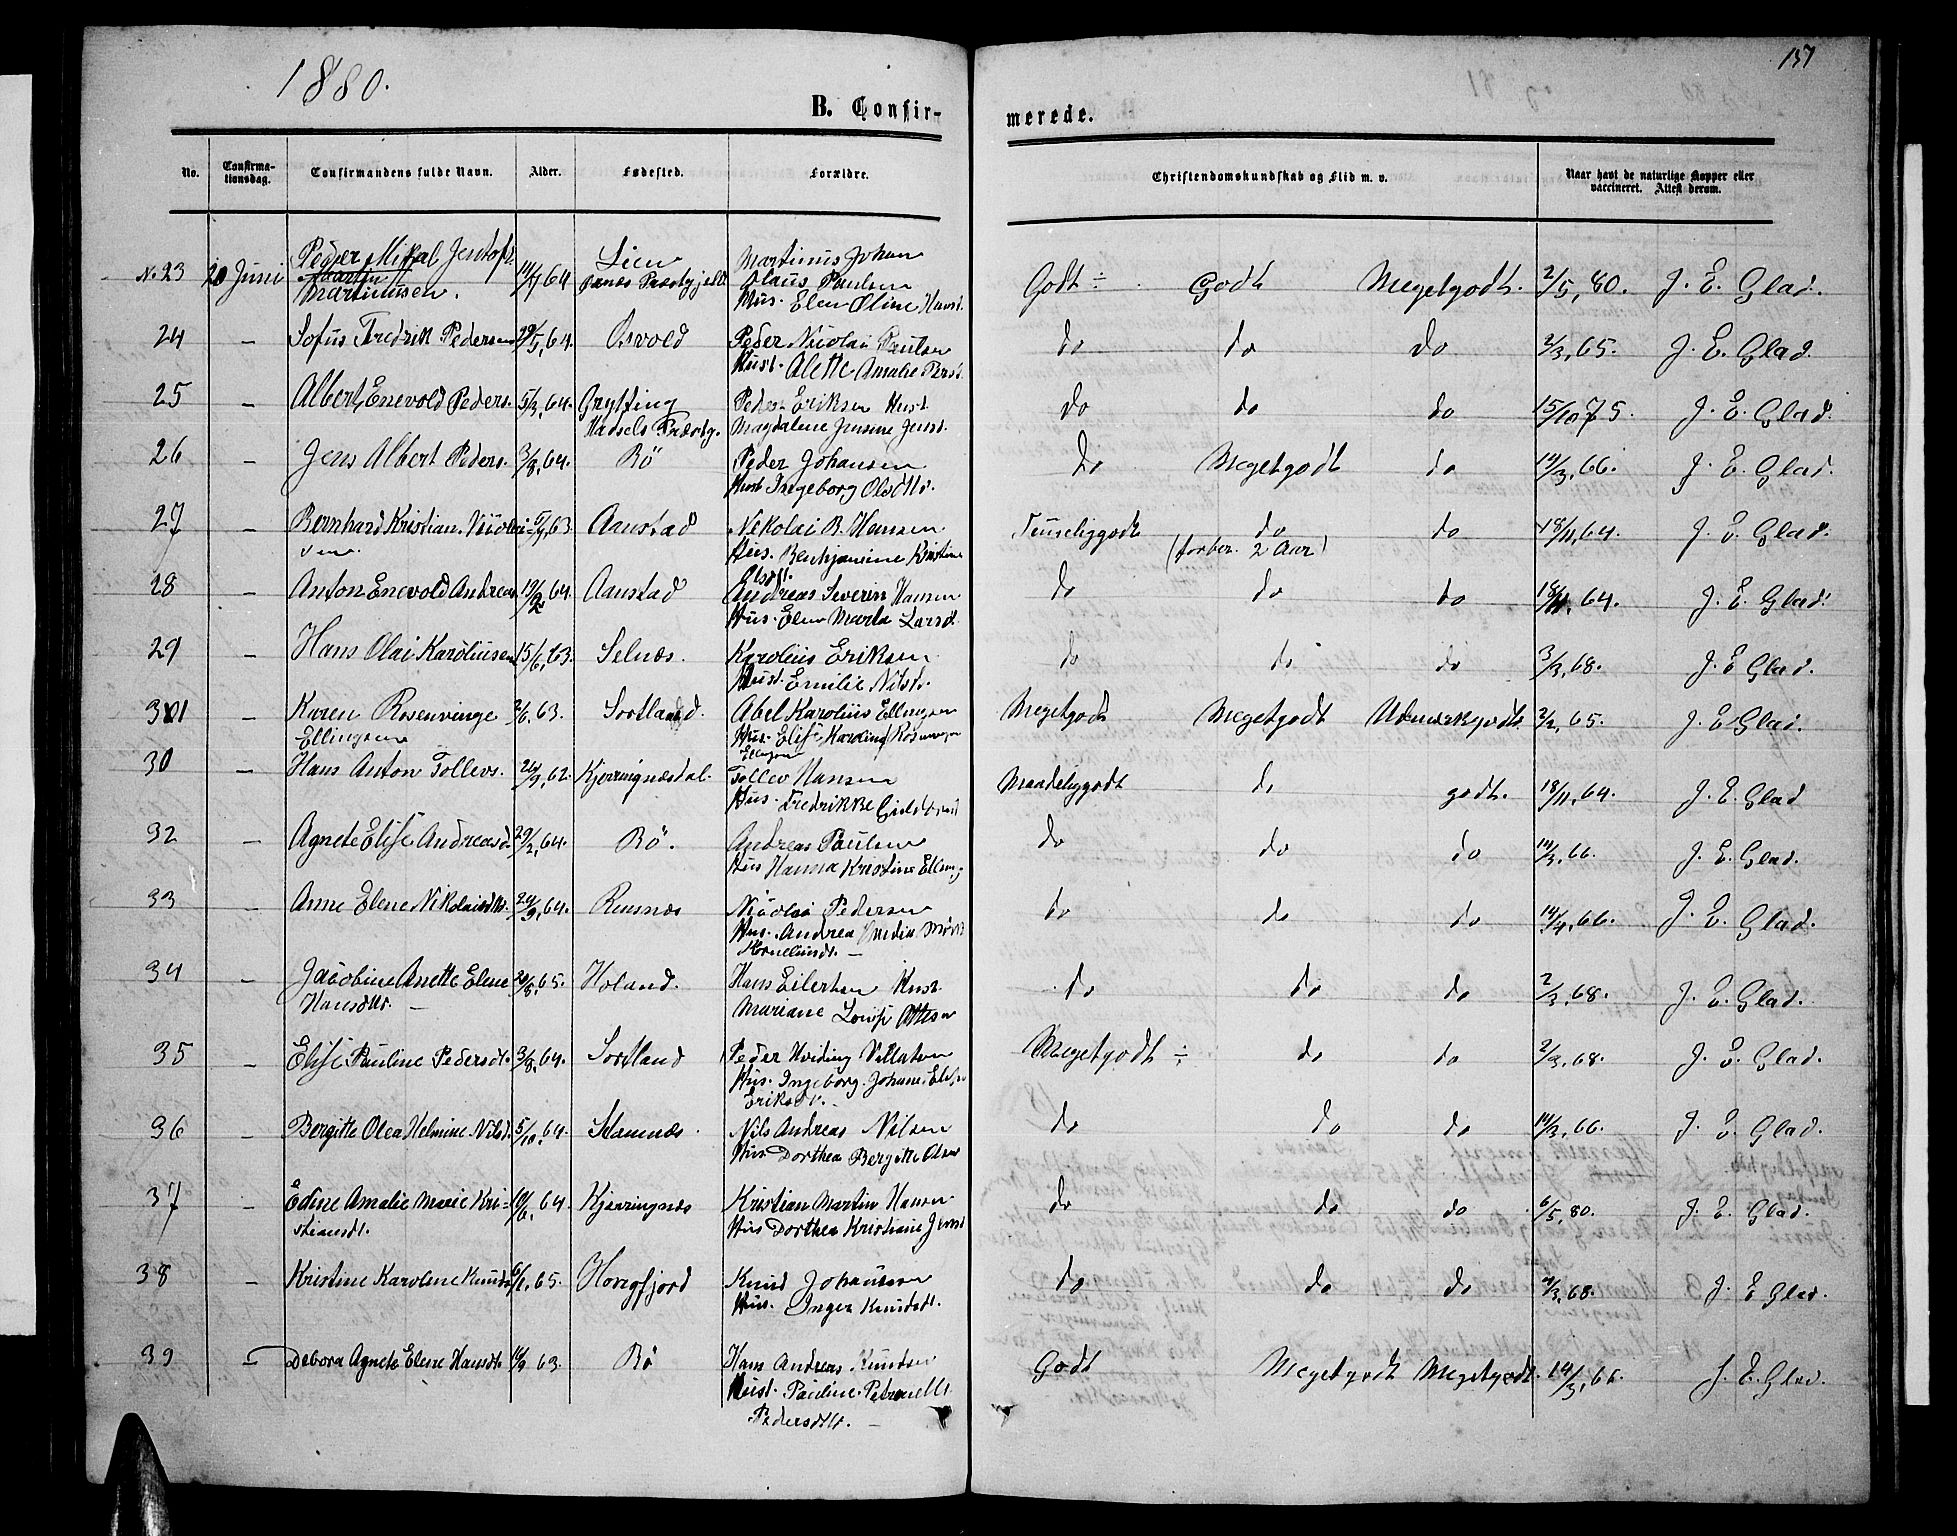 1880.
157
B. Confir-
merede.
No. Confirma-tionsdag. Confirmandens fulde Navn. Alder. Fødested. Forældre. Christendomskundskab og Flid m. v. Naar havt de naturlige Kopper eller vaccineret. Attest derom.
No. 23 20 Juni Peder Mikal Jentoft Martinussen. 64 Martinus Johan Olaus Paulsen Hus. Elen Oline Hansd. Godt ÷ Godt Megetgodt. 2/5, 80. J. E. Glad.
24 – Sofus Fredrik Pedersen 29/5, 64. Osvold Peder Nicolai Paulsen Hust. Alette Amalie Persd. do do do 2/3, 65. J. E. Glad.
25 – Albert Enevold Peders. 5/3, 64. Grytting Hadsels Præstg. Peder Eriksen Hust Magdalene Jensine Jensd. do do do 15/10 75. J. E. Glad.
26 – Jens Albert Peders. 3/8, 64. Bö Peder Johansen Hust Ingeborg Olsdtr. do Megetgodt do 14/3, 66. J. E. Glad.
27 – Bernhard Kristian Nicolai-sen. 63. Aanstad Nekolai B. Hansen Hus. Benhjamine Kristine Olsdt. Temeliggodt do (forber. 2 Aar) do 18/11, 64. J. E. Glad.
28 – Anton Enevold Andreas 19/2 64. Aanstad Andreas Severin Hansen Hus. Elen Marta Larsd. do do do 18/11, 64. J. E. Glad.
29 – Hans Olai Karoliusen 15/6, 63. Selnæs. Karolius Eriksen Hust. Emilie Nilsd. do do do 3/3, 68. J. E Glad.
31 – Karen Rosenvinge Ellingsen 2/6, 63. Sortland. Abel Karolius Ellingsen Hus. Elise Harding Rosenvinge Ellingsen Megetgodt Megetgodt Udmerkgodt 65. J. E Glad.
30 – Hans Anton Tollevs. 62. Kjerringnæsdal. Tollev Hansen Hus. Fredrikke Maadeliggodt do godt. 18/11, 64. J. E. Glad
32 – Agnete Elise Andreasd. 29/2, 64. Bö. Andreas Paulsen Hus Hanna Kristine Elling do do do 14/3, 66. J. E. Glad.
33 – Anne Elene Nikolaisdtr. 64. Reinsnæs Nicolai Pedersen Hus. Andrea Kornelinsdt. – do do do 14/4, 66. J. E. Glad.
34 – Jacobine Anette Elene Hansdtr. – 20/8, 65. Holand. Hans Eilertsen Hust Mariane Lovise Ottesen do do do 2/3, 68. J. E. Glad.
35 – Elise Pauline Pedersdt. 3/8, 64. Sortland Peder Hviding Villatsen Hus. Ingeborg Johane Elise Eriksdt. – Megetgodt ÷ do do 2/3, 68. J. E. Glad.
36 – Bergitte Olea Helmine Nilsd. 5/10, 64. Stamnæs. Nils Andreas Nilsen Hus Dorthea Bergitte Olsen do do do 14/3, 66. J. E. Glad.
37 – Edine Amalie Marie Kri-stiansdt. 10/6, 64. Kjerringnæs Kristian Martin Hansen Hus Dorthea Kristiane Jensd do do do 6/5, 80. J. E. Glad.
38 – Kristine Karoline Knuds 6/1, 65. Hongfjord Knud Johansen Hus. Inger Knudsdt. do do do 2/3, 68. J. E Glad.
39 – Debora Agnete Elene Hansdt. 63. Bö Hans Andreas Knudsen Hust. Pauline Petronelle Pedersdtr. – Godt Megetgodt Megetgodt. 14/3, 66. J. E. Glad.